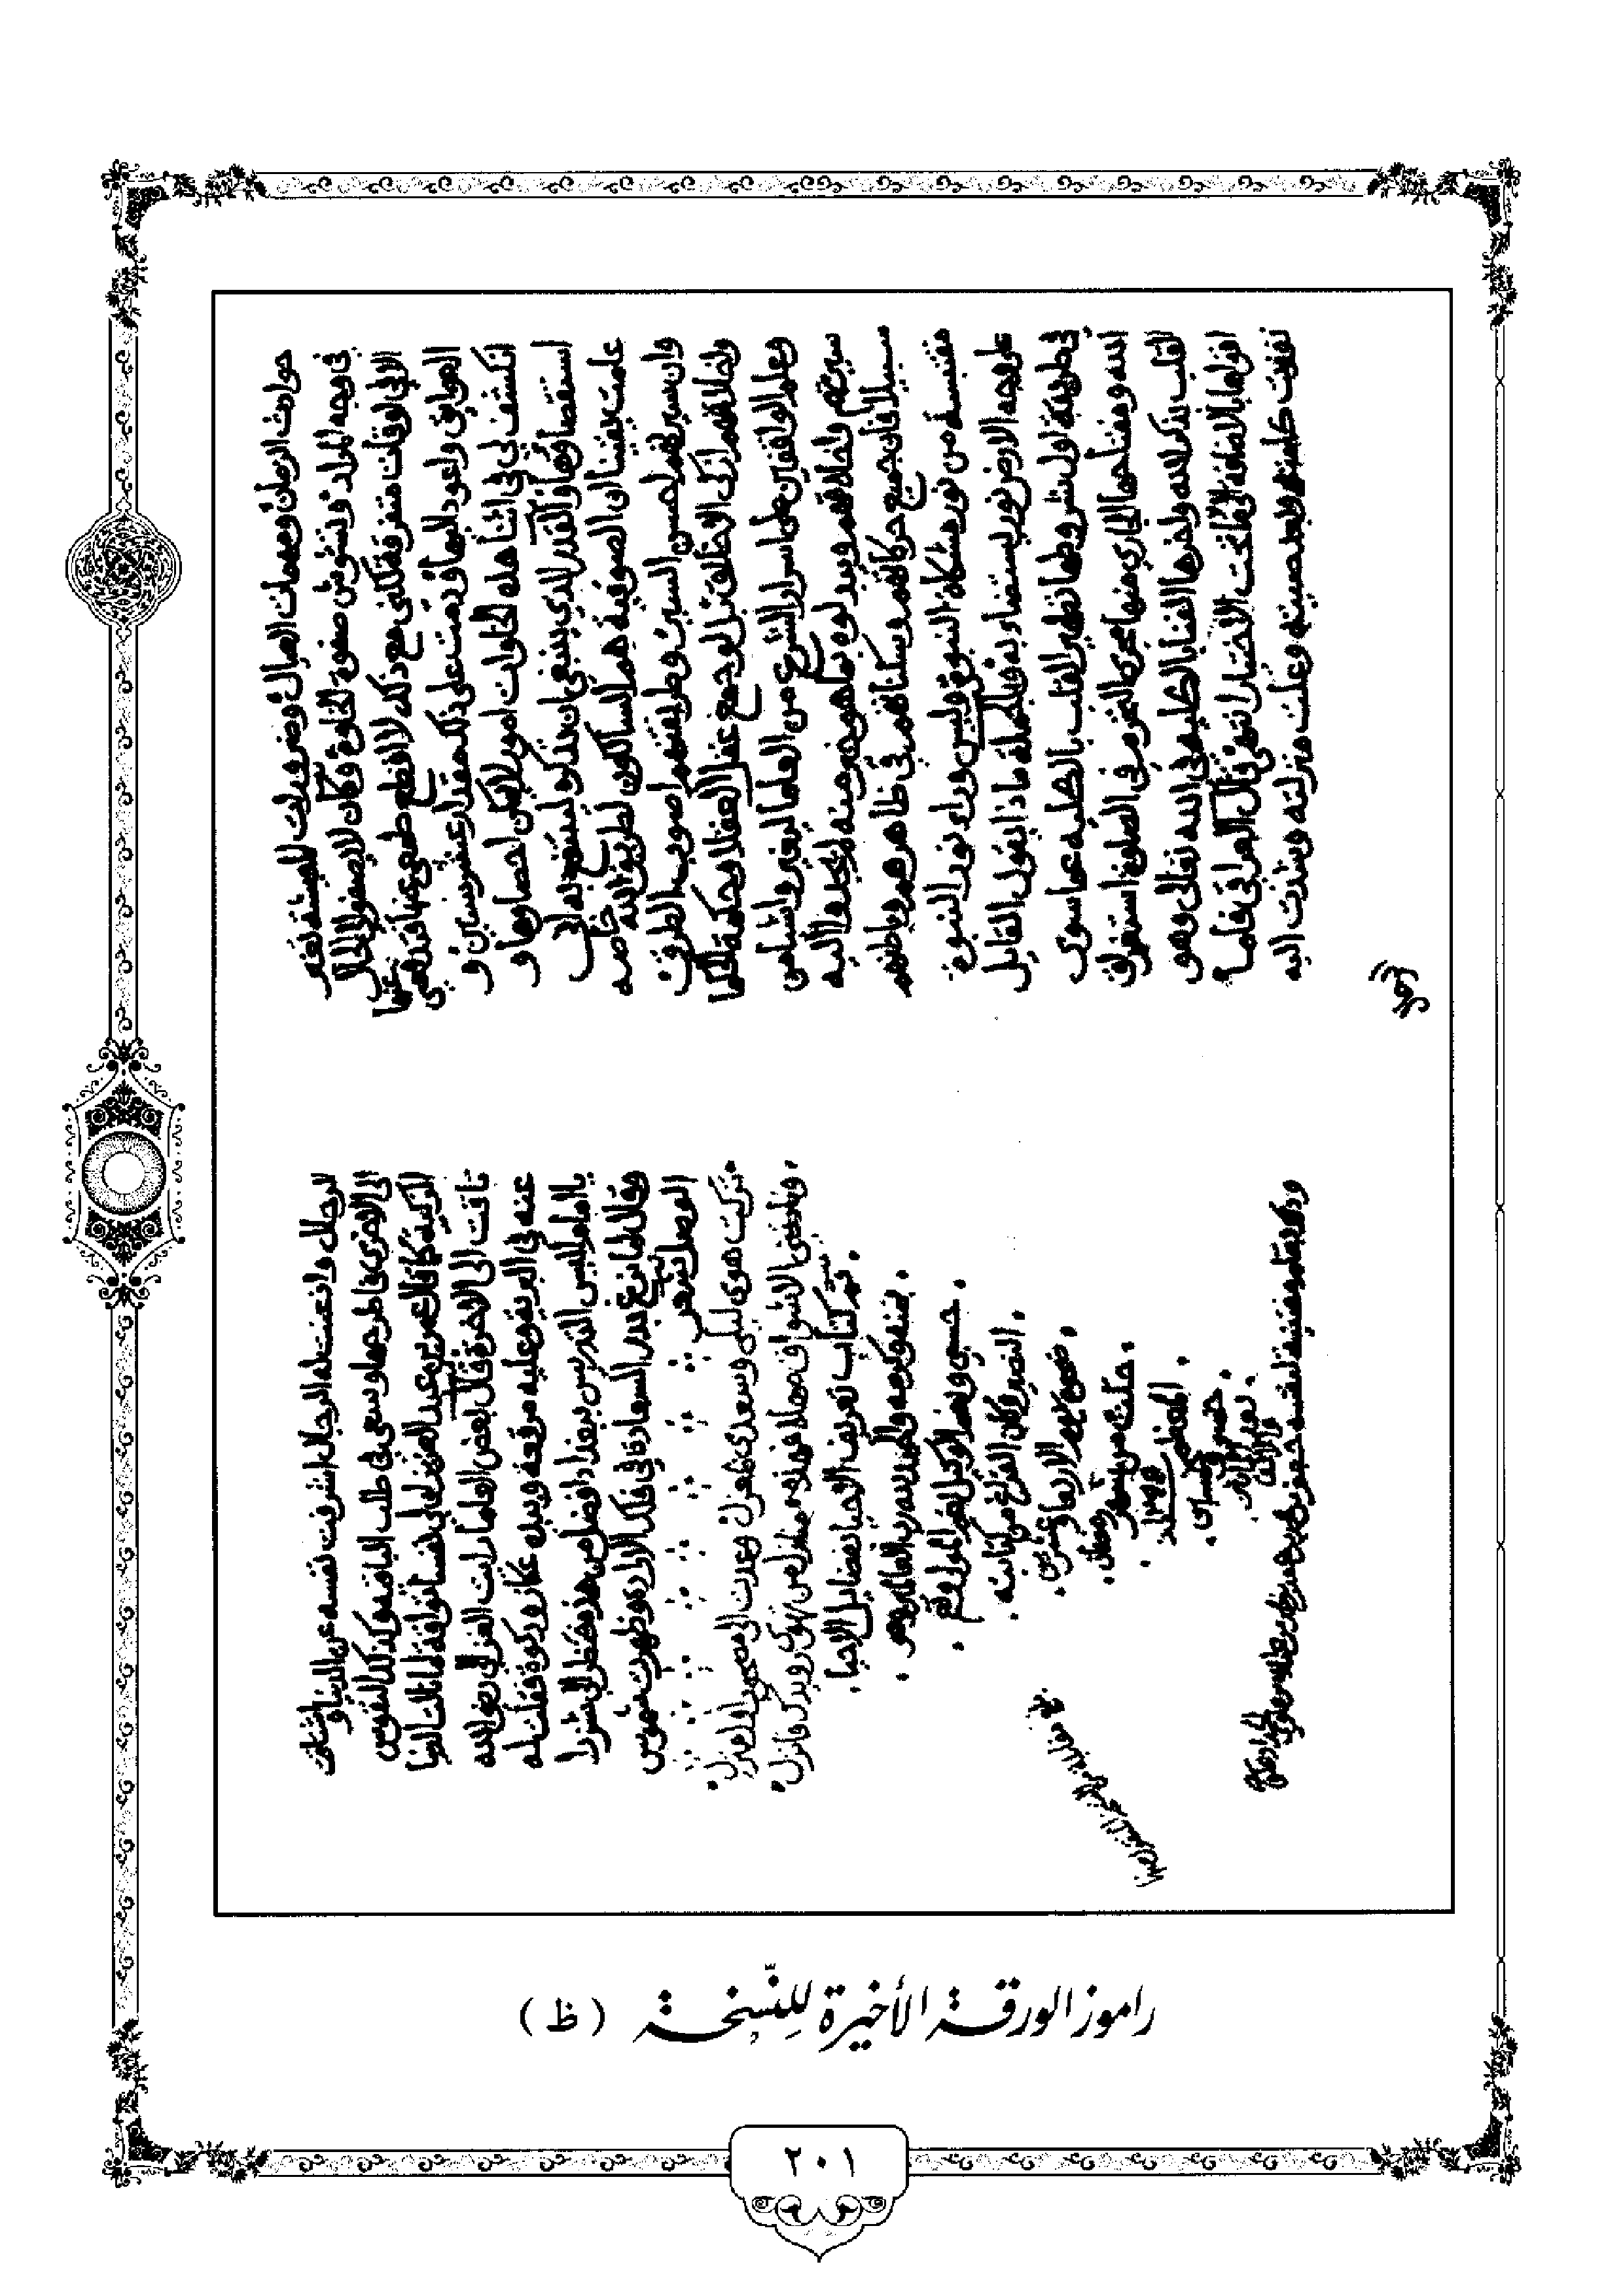 حوادث الزمان ومهمات العيال وضرورات المعيشة تغير
في وجه المراد وتشوش صفوة الخلوة وكان لا يصفو لي الحال
الا في اوقات متفرقة لكني مع ذلك لا اقطع طمعي عنها فتدفعني عنها
العوايق واعود اليها ودمت على ذلك مقدار عشر سنين و
انكشف لي في اثنا هذه الخلوات امور لا يمكن احصاوها و
استقصاؤها والقدر الذي ينبغي ان نذكره لينتفع به اني
علمت يقينا ان الصوفية هم السالكون لطريق الله خاصة
وان سيرتهم احسن السير وطريقتهم اصوب الطرق
واخلاقهم ازكى الاخلاق بل لو جمع عقل العقلا وحكمة الحكما
وعلم الواقفين على اسرار الشرع من العلما ليغيروا شيا من
سيرتهم واخلاقهم ويبدلوه بما هو خير منه لم يجدوا اليه
سبيلا فان جميع حركاتهم وسكناتهم في ظاهرهم وباطنهم
مقتبسة من نور مشكاة النبوة وليس وراء نور النبوة
على وجه الارض نور يستضاء به وبالجملة ماذا يقول القايل
في طريقة اول شروطها تطهير القلب بالكلية عما سوى
الله ومفتاحها الجاري منها مجرى التحرم في الصلوة استغراق
القلب بذكر الله واخرها الفنا بالكلية في الله تعالى وهو
اقواها بالاضافة الى ما تحت الاختيار انتهى قال العراقي فلما
نفذت كلمته وبعد صيته وعلت منزلته وشدت اليه
الرحال
الرحال واذعنت له الرجال اشرفت نفسه عن الدنيا واشتاقت
الى الاخرى فاطرحها وسعى في طلب الباقية وكذلك النفوس
الزكية كما قال عمر بن عبد العزيز ان لي نفسا تواقة لما نالت الدنيا
تاقت الى الاخرة قال بعض العلما رايت الغزالي رضي الله
عنه في البرية وعليه مرقعة وبيده عكاز وركوة فقلت له
يا امام اليس التدريس ببغداد افضل من هذا فنظر الي شزرا
وقال لما بزغ بدر السعادة في فلك الارادة وظهرت شموس
الوصل شعر
تركت هوى ليلى وسعدى بمعزل وعدت الى مصحوب اول منزل
ونادتني الاشواق مهلا فهذه منازل من تهوى رويدك فانزل
تم كتاب تعريف الاحيا بفضايل الاحيا
بمنه وكرمه والحمد لله رب العالمين وهو
حسبي ونعم الوكيل نعم المولى ونعم
النصير وكان الفراغ من كتابته
ضحى يوم الاربعا
خلت من شهر رمضان
المعظم
راموز الورقة الأخيرة للنسخة (ظ)
٢٠١